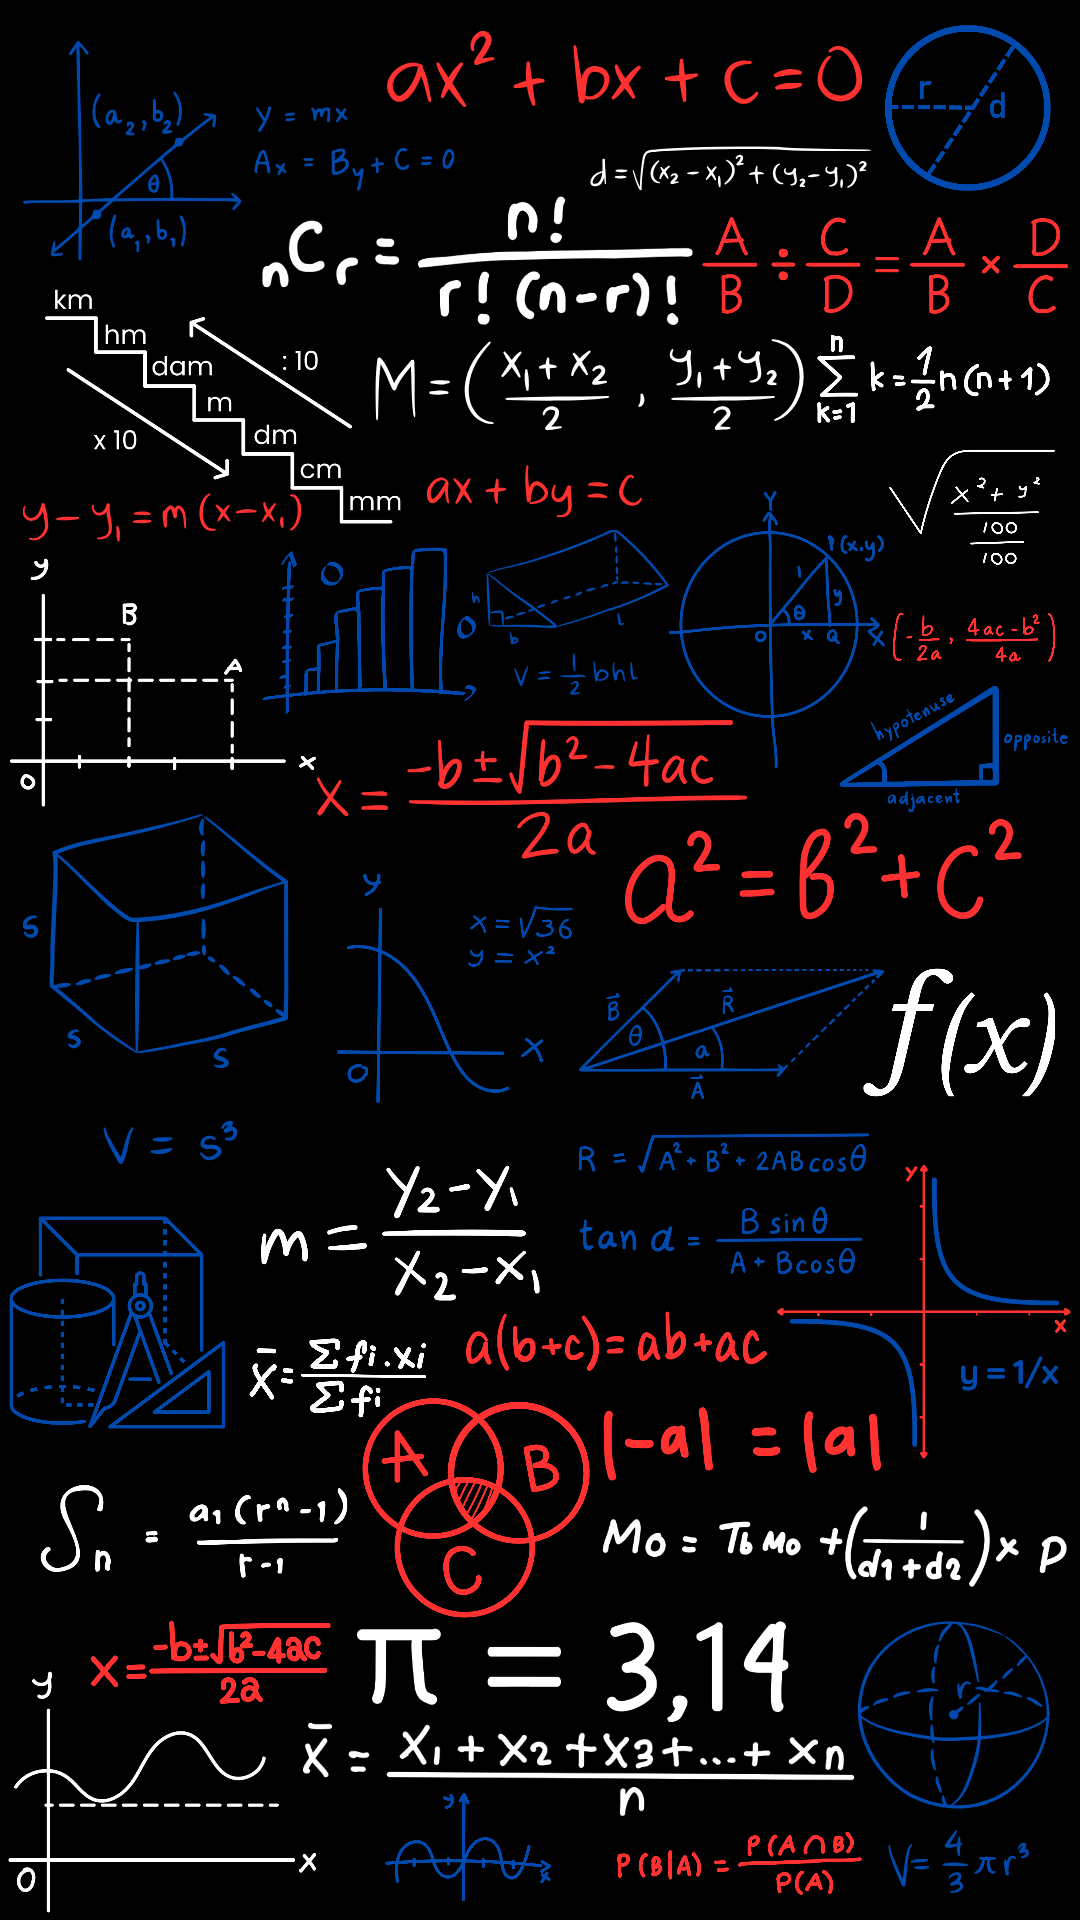 ax² + bx + c = 0
r
d
(a₂, b₂)
y = mx
Ax = By + C = 0
θ
(a₁, b₁)
d = √(x₂ - x₁)² + (y₂ - y₁)²
nCr = n! / r! (n-r)!
A/B ÷ C/D = A/B × D/C
km
hm
dam
m
dm
cm
mm
: 10
x 10
M = ( x₁ + x₂ / 2 , y₁ + y₂ / 2 )
n ∑ k=1 k = 1/2 n(n+1)
y - y₁ = m (x - x₁)
ax + by = c
√ x² + y² / 100 / 100
y
B
A
O
x
O
O
h
b
l
V = 1/2 bhl
Y
P(x.y)
1
y
θ
o
x
a
X
( -b/2a , 4ac - b²/4a )
hypotenuse
opposite
adjacent
X = -b ± √b² - 4ac / 2a
a² = b² + c²
s
s
s
V = s³
y
O
x
x = √36
y = x²
B
R
θ
a
A
f(x)
R = √A² + B² + 2AB cos θ
tan a = B sin θ / A + B cos θ
m = Y₂ - Y₁ / X₂ - X₁
y
x
y = 1/x
x̄ = ∑ fi . xi / ∑ fi
a(b+c) = ab+ac
A
B
C
|-a| = |a|
Sn = a₁ (rⁿ - 1) / r - 1
Mo = Tb Mo + ( 1 / d1 + d2 ) x p
x = -b ± √b² - 4ac / 2a
π = 3,14
r
y
O
x
x̄ = x₁ + x₂ + x₃ + ... + xn / n
y
x
P(B|A) = P(A ∩ B) / P(A)
V = 4/3 π r³